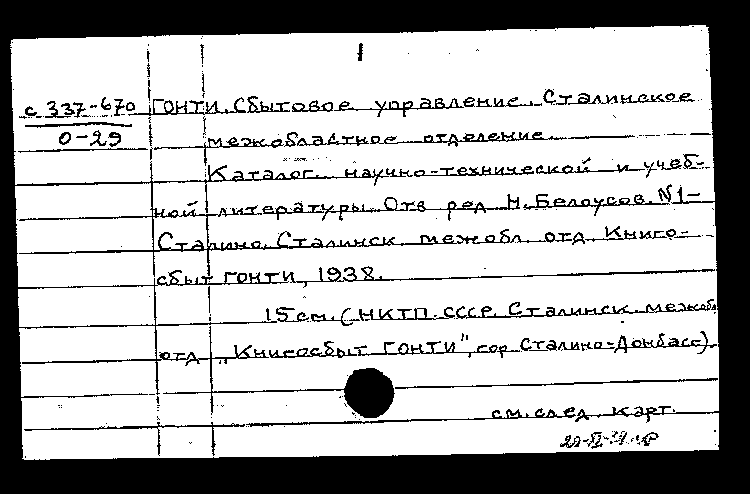 1
с 337-670 ГОНТИ. Сбытовое управление. Сталинское
0-29 межобластное отделение.
Каталог научно-технической и учеб-
ной литературы. Отв ред Н. Белоусов. N1-
Сталино, Сталинск. межобл. отд. Книго-
сбыт ГОНТИ, 1938.
15 см. (НКТП. СССР. Сталинск. межобл
отд „Книгосбыт ГОНТИ", гор Сталино-Донбасс).
см. след. карт.